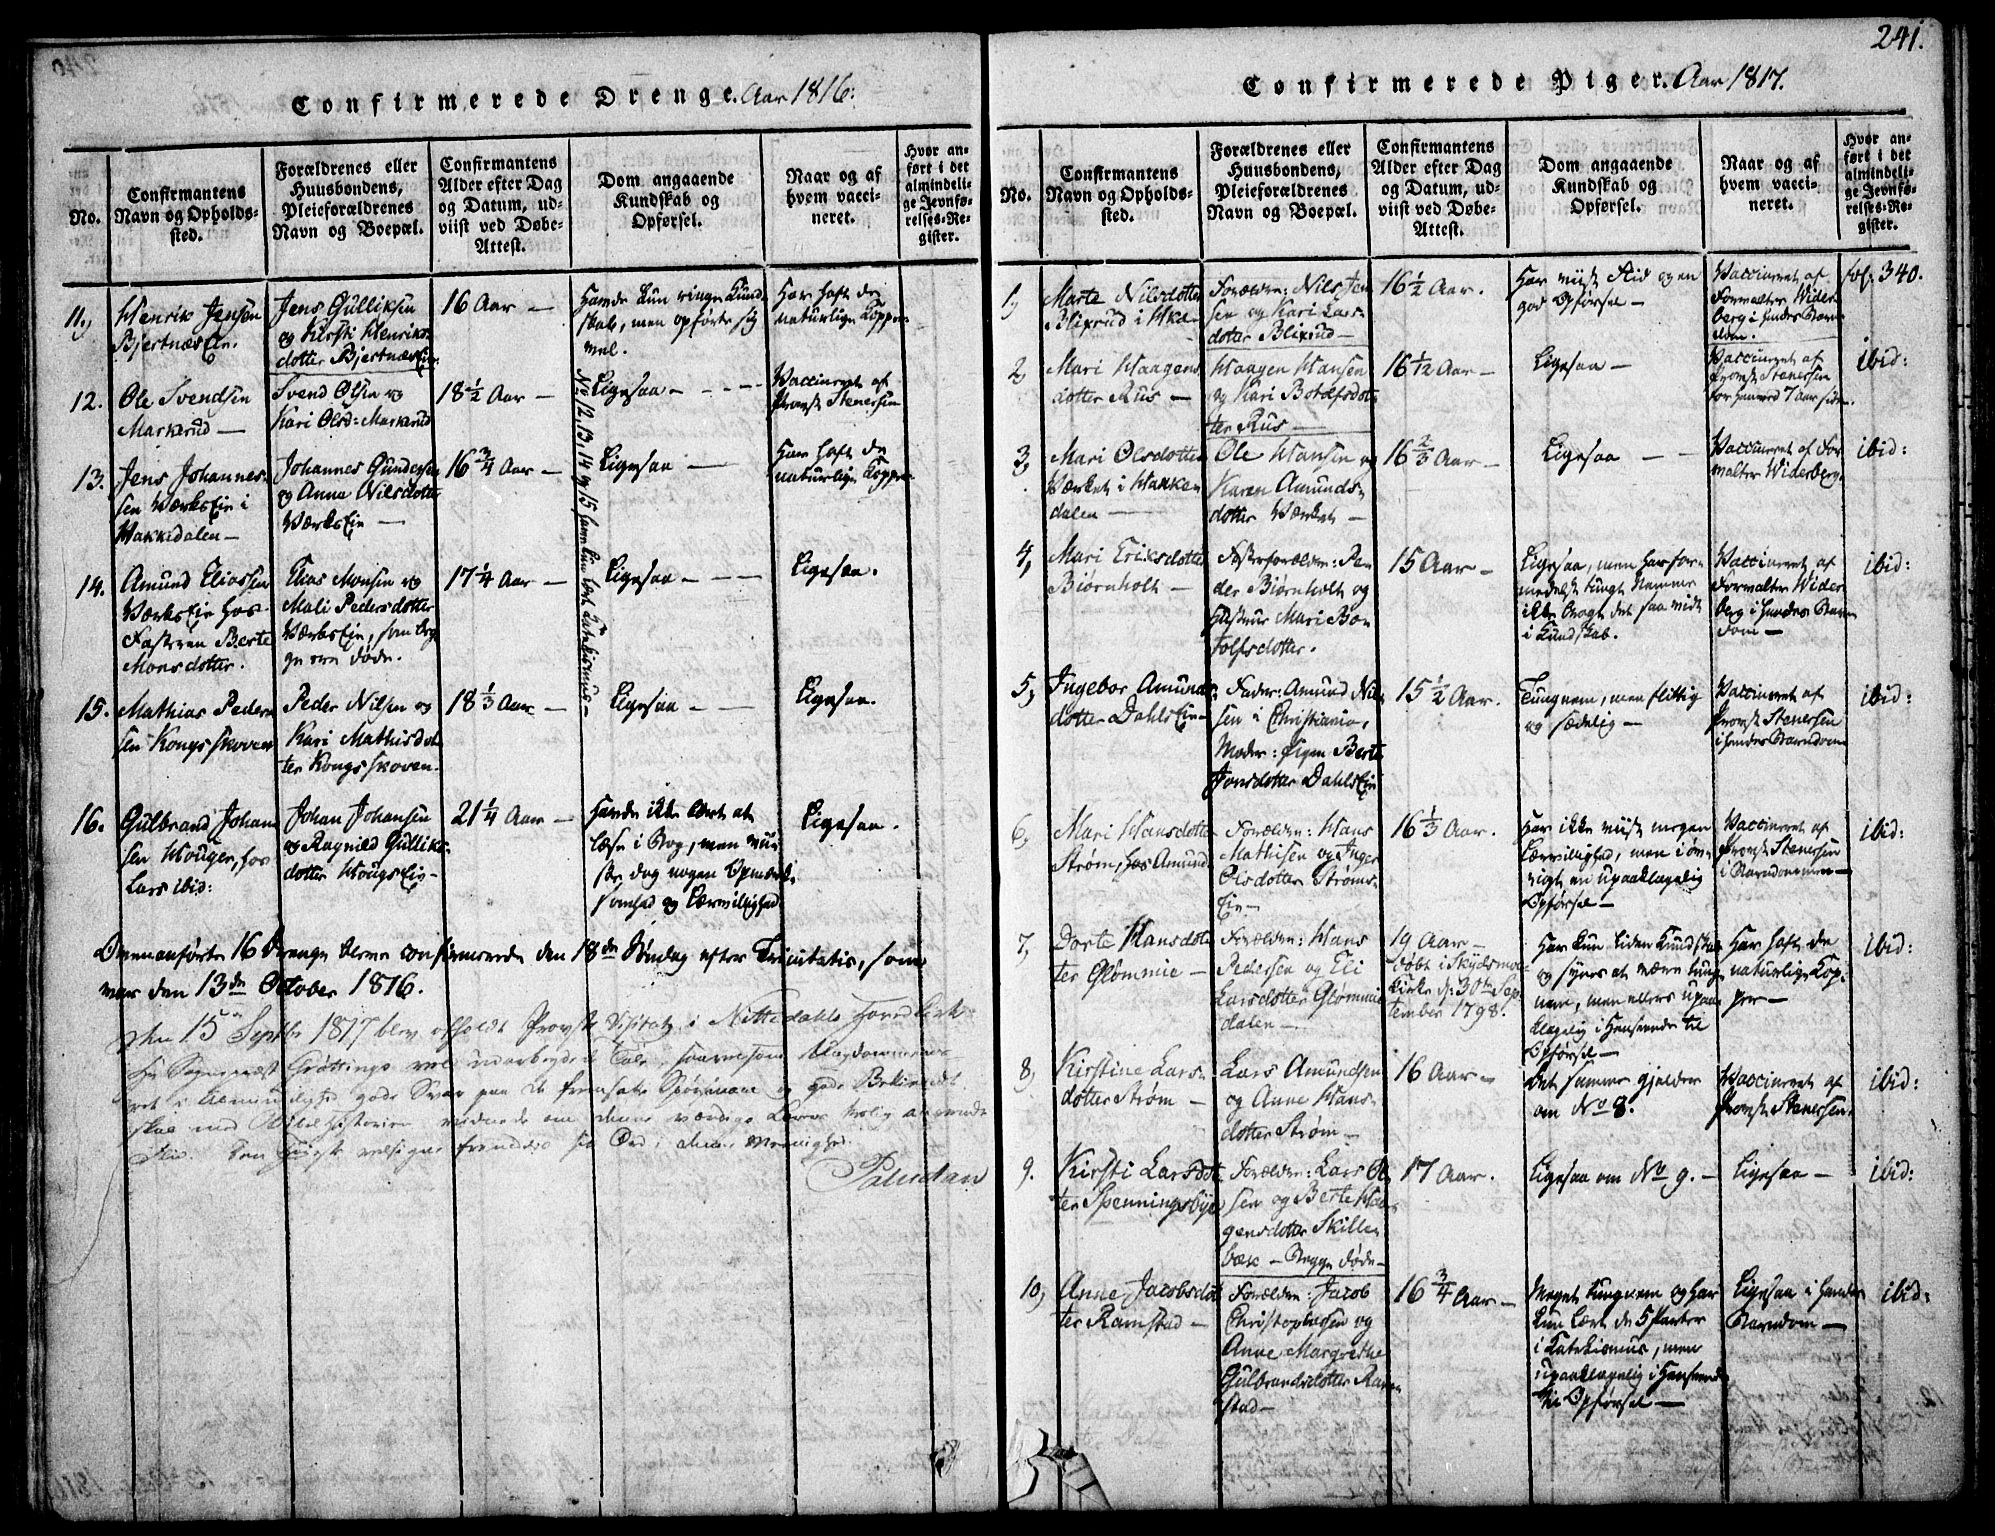 241.
Confirmerede Drenge. Aar 1816.
No.
Confirmantens
Navn og Opholds-
sted.
Forældrenes eller
Huusbondens,
Pleieforældrenes
Navn og Boepæl.
Confirmantens
Alder efter Dag
og Datum, ud-
viist ved Døbe-
Attest.
Dom angaaende
Kundskab og
Opførsel.
Naar og af
hvem vacci-
neret.
Hvor an-
ført i det
almindeli-
ge Jevnfø-
relses-Re-
gister.
11.
Henrik Jensen
Bjertnæs Eie.
Jens Gulliksen
og Kirsti Henriks-
dotter Bjertnæs Eie.
16 Aar —
Havde kun ringe Kund-
skab, men opførte sig
vel.
Har haft de
naturlige Kopper.
12.
Ole Svendsen
Markerud —
Svend Olsen og
Kari Olsd: Markerud
18 1/2 Aar —
Ligesaa —
Vaccineret af
Provst Stenersen
No 12, 13, 14 og 15
13.
Jens Johannes-
sen Værks Eie i
Hakkedalen —
Johannes Gundersen
og Anna Nilsdotter
Værks Eie —
16 3/4 Aar —
Ligesaa —
Har haft de
naturlige Kopper.
14.
Amund Eliassen
Værks Eie hos
Fasteren Berte
Monsdotter.
Elias Monsen og
Mali Pedersdotter
Værks Eie, som beg-
ge ere døde.
17 1/4 Aar —
Ligesaa —
Ligesaa.
15.
Mathias Peder-
sen Kongsskoven
Peder Nilsen og
Kari Mathisdot-
ter Kongsskoven.
18 1/3 Aar —
Ligesaa —
Ligesaa.
16.
Gulbrand Johan-
sen Houger, hos
Lars ibid:
Johan Johansen
og Ragnild Gulliks-
dotter Hougs Eie —
21 1/4 Aar —
Havde ikke lært at
læse i Bog, men vii-
ste dog nogen Opmærk-
somhed og Lærvillighed
Ligesaa.
Ovenanførte 16 Drenge bleve confirmerede den 18de Søndag efter Trinitatis, som
var den 13de October 1816.
Den 15 Septbr 1817 blev afholdt Provste Visitats i Nittedahls Hoved Kirke
Paludan
Confirmerede Piger. Aar 1817.
No.
Confirmantens
Navn og Opholds-
sted.
Forældrenes eller
Huusbondens,
Pleieforældrenes
Navn og Boepæl.
Confirmantens
Alder efter Dag
og Datum, ud-
viist ved Døbe-
Attest.
Dom angaaende
Kundskab og
Opførsel.
Naar og af
hvem vacci-
neret.
Hvor an-
ført i det
almindeli-
ge Jevnfø-
relses-Re-
gister.
1,
Marte Nilsdotter
Blixrud i Hka-
Forældre: Nils Jen-
sen og Kari Lars-
dotter Blixrud —
16 1/2 Aar.
Har viist Flid og en
god Opførsel —
Vaccineret af
Forvalter Wider-
berg i hendes Barn-
dom.
fol: 340.
2
Mari Haagens-
dotter Rus —
Haagen Hansen
og Kari Botolfsdot-
ter Rus —
16 1/12 Aar —
Ligesaa —
Vaccineret af
Provst Stenersen
for henved 7 Aar siden.
ibid:
3,
Mari Olsdotter
Værket i Hakke-
dalen —
Ole Hansen og
Karen Amunds-
dotter Værket —
16 2/3 Aar —
Ligesaa —
Vaccineret af For-
valter Widerberg.
ibid:
4,
Mari Eriksdotter
Biørnholt —
Fosterforældre: Pe-
der Biørnholt og
Hustrue Mari Bo-
tolfsdotter.
15 Aar —
Ligesaa, men har for-
medelst tungt Nemme
ikke bragt det saa vidt
i Kundskab.
Vaccineret af
Forvalter Wider-
berg i hendes Barn-
dom —
ibid:
5,
Ingebor Amunds-
dotter Dahls Eie —
Fader: Amund Nil-
sen i Christiania,
Moder: Pigen Berte
Jonsdotter Dahls Eie
15 1/2 Aar.
Tungnem, men flittig
og sædelig —
Vaccineret af
Provst Stenersen
i hendes Barndom
ibid:
6,
Mari Hansdotter
Strøm, hos Amund
Forældre: Hans
Mathisen og Inger
Olsdotter Strøms-
Eie —
16 1/3 Aar.
Har ikke viist megen
Lærvillighed, men i øv-
rigt en upaaklagelig
Opførsel —
Vaccineret af
Provst Stenersen
i Barndommen —
ibid:
7,
Dorte Hansdot-
ter Glømmie —
Forældre: Hans
Pedersen og Eli
Larsdotter Glømmie
dalen —
19 Aar —
døbt i Skydsmoe
Kirke d: 30te Sep-
tember 1798.
Har kun liden Kundskab
og synes at være tung-
nem, men ellers upaa-
klagelig i Henseende til
Opførsel —
Har haft de
naturlige Kop-
per —
ibid:
8,
Kirstine Lars-
dotter Strøm —
Lars Amundsen
og Anne Hans-
dotter Strøm —
16 Aar —
Det samme gjelder
om No 8.
Vaccineret af
Provst Stenersen.
ibid:
9.
Kirsti Larsdot-
ter Spenningsbye
Forældre: Lars Ol-
sen og Berte Haa-
gensdotter Skille-
bæk — Begge døde —
17 Aar.
Ligesaa om No 9. —
Ligesaa —
ibid:
10,
Anne Jacobsdot-
ter Ramstad —
Forældre: Jacob
Christophersen og
Anne Margrethe
Gulbrandsdotter Ram-
stad —
16 3/4 Aar —
Meget tungnem og har
kun lært de 5 Parter
i Katekismus, men
upaaklagelig i Henseende
til Opførsel —
Ligesaa i hendes
Barndom —
ibid: